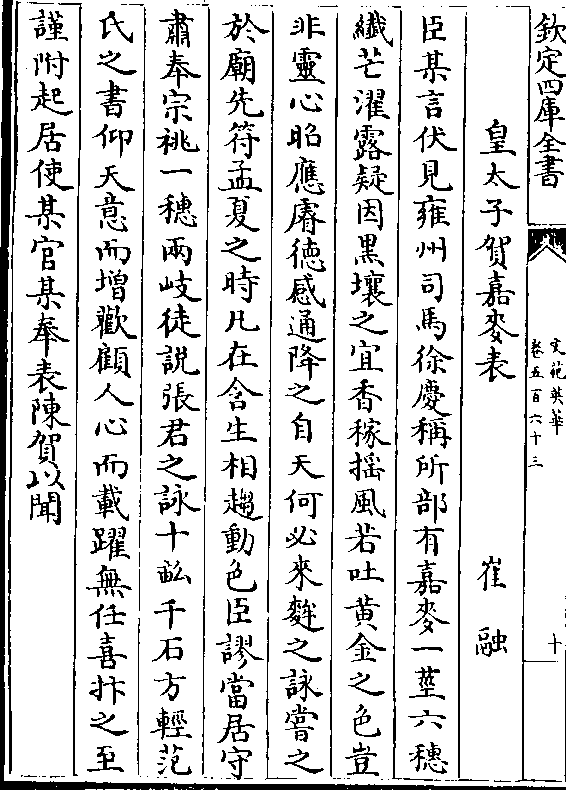 欽定四庫全書
文苑英華
卷五百六十三
十
皇太子賀嘉麥表
崔融
臣某言伏見雍州司馬徐慶稱所部有嘉麥一莖六穗
纖芒濯露疑因黑壤之宜香稼揺風若吐黄金之色豈
非靈心昭應睿德感通降之自天何必來麰之詠嘗之
於廟先符孟夏之時凡在含生相趨動色臣謬當居守
肅奉宗祧一穗兩岐徒説張君之詠十畝千石方輕范
氏之書仰天意而增歡顧人心而載躍無任喜抃之至
謹附起居使某官某奉表陳賀以聞